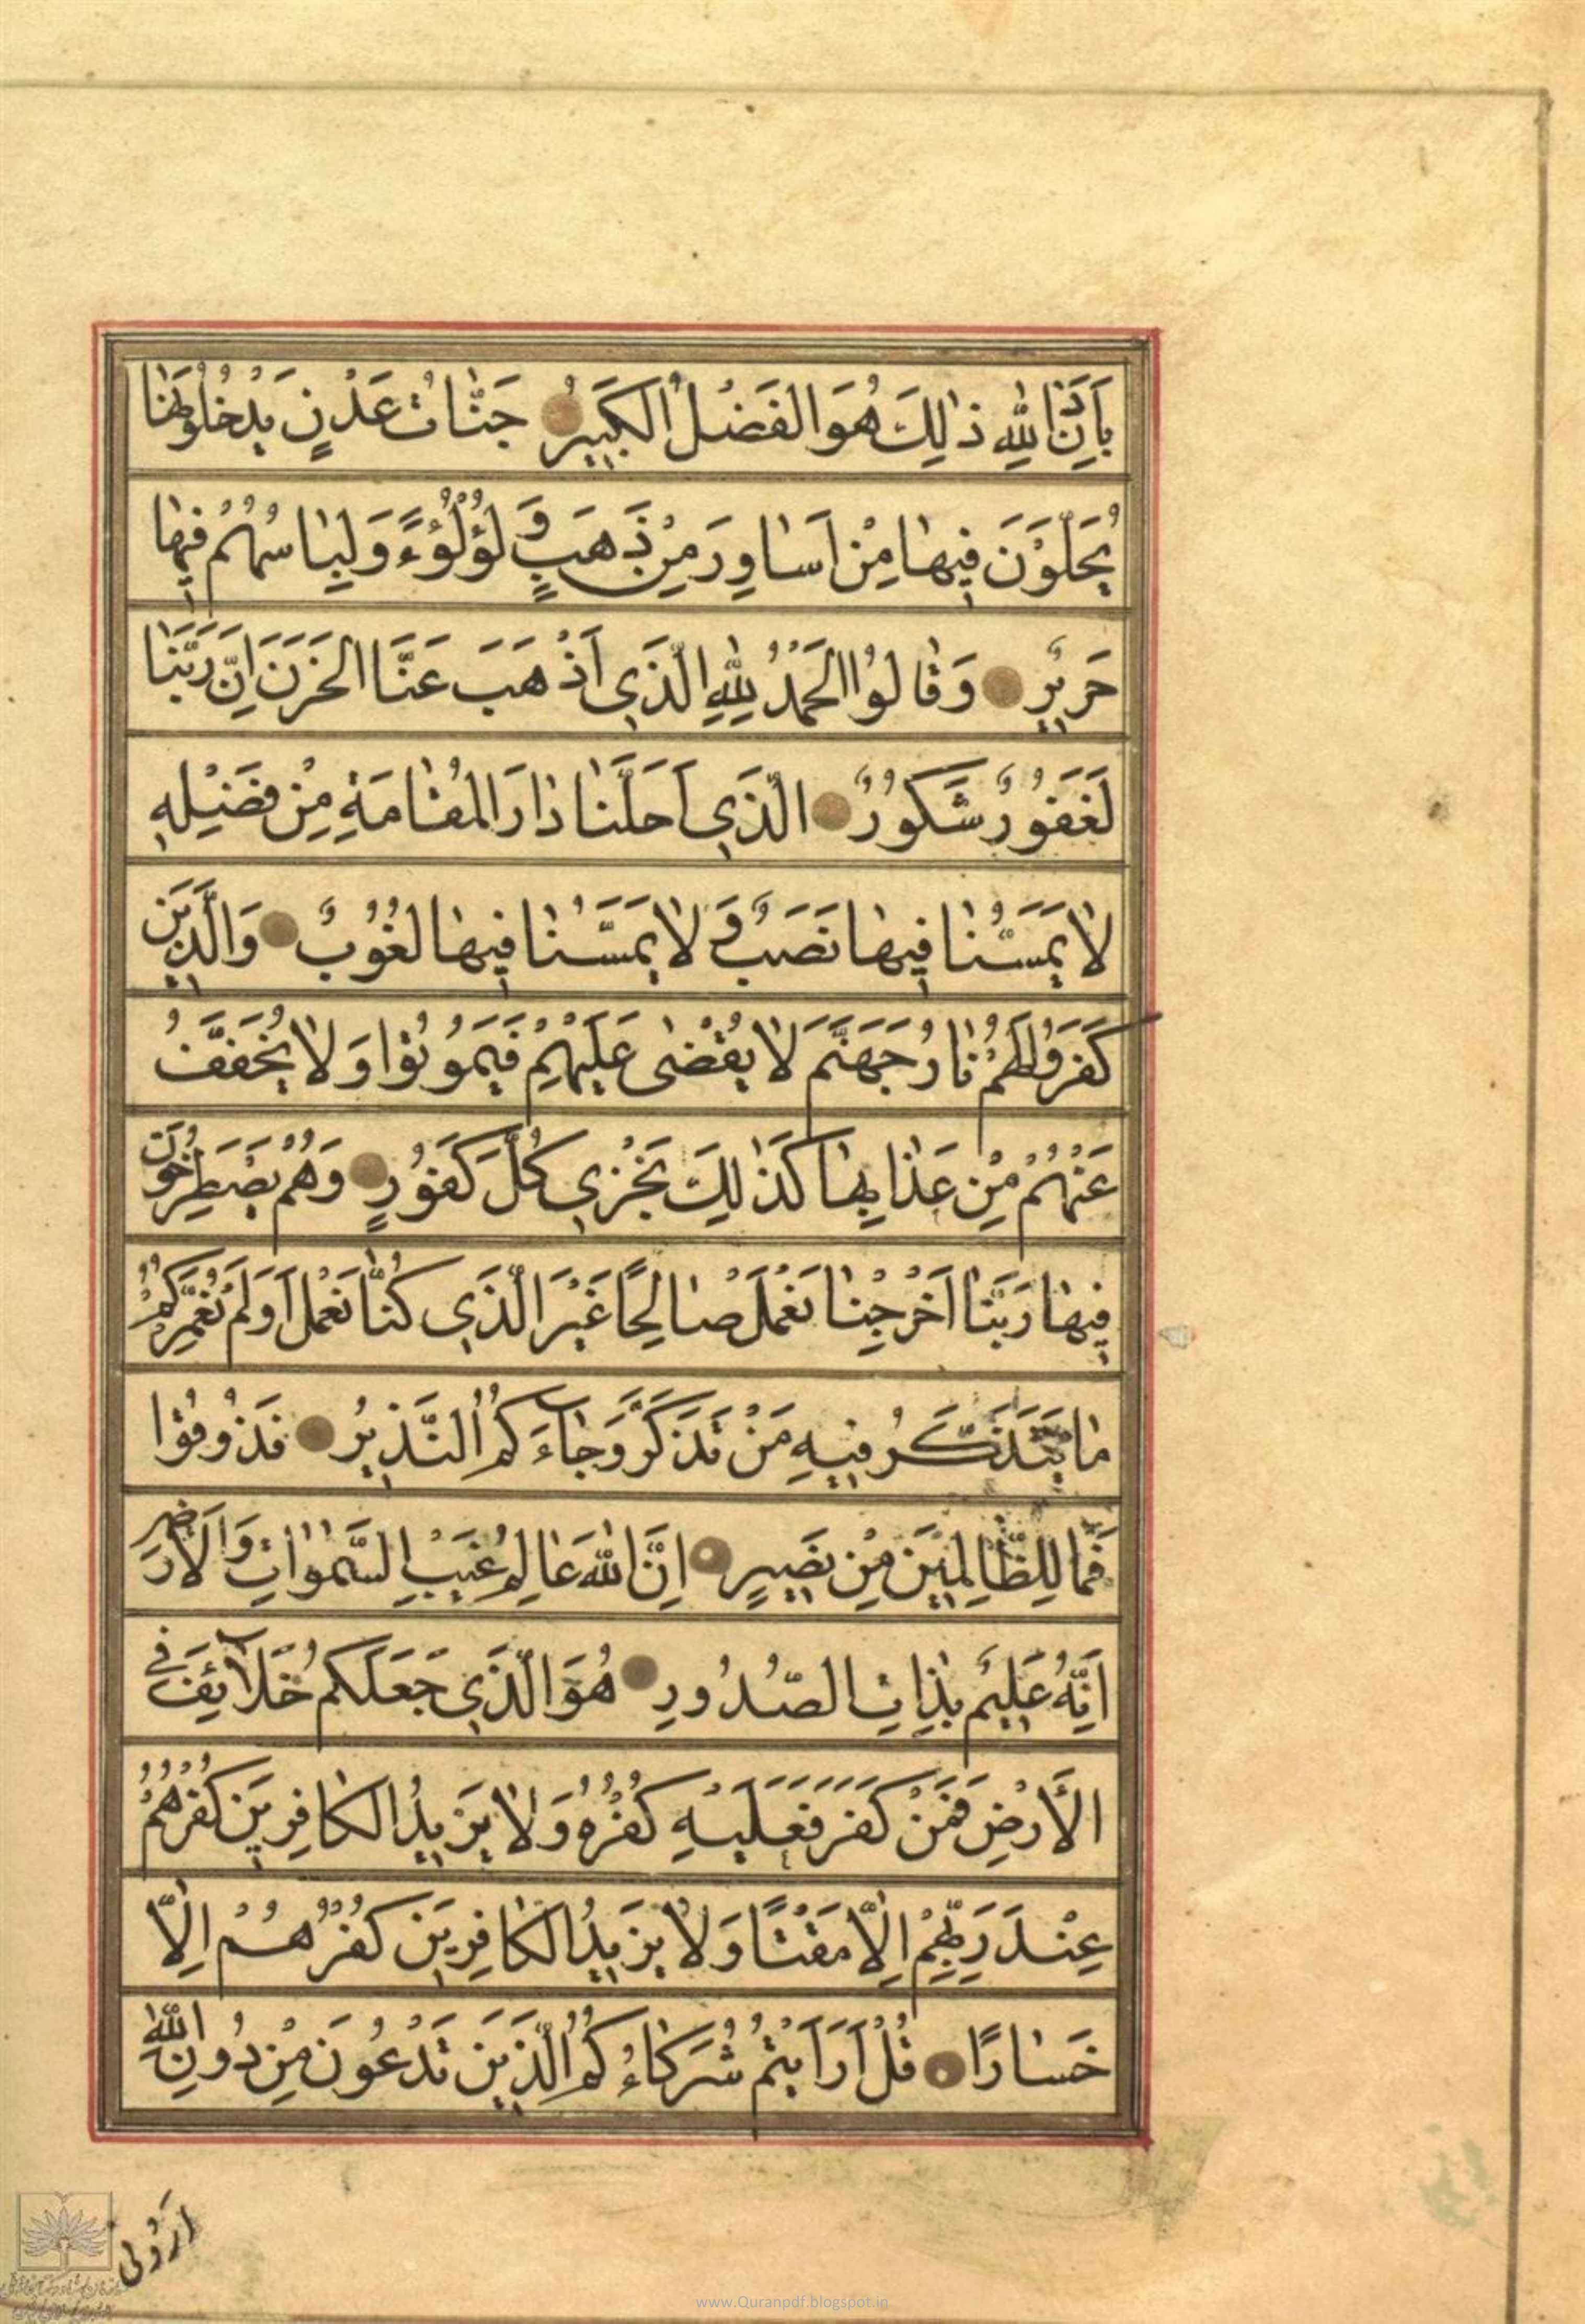 بِاِذْنِ اللّٰهِ ذٰلِكَ هُوَ الْفَضْلُ الْكَبِيرُ جَنَّاتُ عَدْنٍ يَدْخُلُونَهٰا
يُحَلَّوْنَ فِيهٰا مِنْ اَسٰاوِرَ مِنْ ذَهَبٍ وَ لُؤْلُؤءً وَ لِبٰاسُهُمْ فِيهٰا
حَرِيرٌ وَ قٰالُوا الْحَمْدُ لِلّٰهِ الَّذِي اَذْهَبَ عَنَّا الْحَزَنَ اِنَّ رَبَّنٰا
لَغَفُورٌ شَكُورٌ الَّذِي اَحَلَّنٰا دٰارَ الْمُقٰامَةِ مِنْ فَضْلِهِ
لاٰ يَمَسُّنٰا فِيهٰا نَصَبٌ وَ لاٰ يَمَسُّنٰا فِيهٰا لُغُوبٌ وَالَّذِينَ
كَفَرُوا لَهُمْ نٰارُ جَهَنَّمَ لاٰ يُقْضٰى عَلَيْهِمْ فَيَمُوتُوا وَ لاٰ يُخَفَّفُ
عَنْهُمْ مِنْ عَذٰابِهٰا كَذٰلِكَ نَجْزِي كُلَّ كَفُورٍ وَ هُمْ يَصْطَرِخُونَ
فِيهٰا رَبَّنٰا اَخْرِجْنٰا نَعْمَلْ صٰالِحًا غَيْرَ الَّذِي كُنّٰا نَعْمَلُ اَوَلَمْ نُعَمِّرْكُمْ
مٰا يَتَذَكَّرُ فِيهِ مَنْ تَذَكَّرَ وَ جٰاءَكُمُ النَّذِيرُ فَذُوقُوا
فَمٰا لِلظّٰالِمِينَ مِنْ نَصِيرٍ اِنَّ اللّٰهَ عَالِمُ غَيْبِ السَّمٰوٰاتِ وَالْاَرْضِ
اِنَّهُ عَلِيمٌ بِذٰاتِ الصُّدُورِ هُوَ الَّذِي جَعَلَكُمْ خَلاٰئِفَ فِي
الْاَرْضِ فَمَنْ كَفَرَ فَعَلَيْهِ كُفْرُهُ وَ لاٰ يَزِيدُ الْكٰافِرِينَ كُفْرُهُمْ
عِنْدَ رَبِّهِمْ اِلاّٰ مَقْتًا وَ لاٰ يَزِيدُ الْكٰافِرِينَ كُفْرُهُمْ اِلاّٰ
خَسٰارًا قُلْ اَرَاَيْتُمْ شُرَكٰاءَكُمُ الَّذِينَ تَدْعُونَ مِنْ دُونِ اللّٰهِ
اَرُونِى
www.Quranpdf.blogspot.in